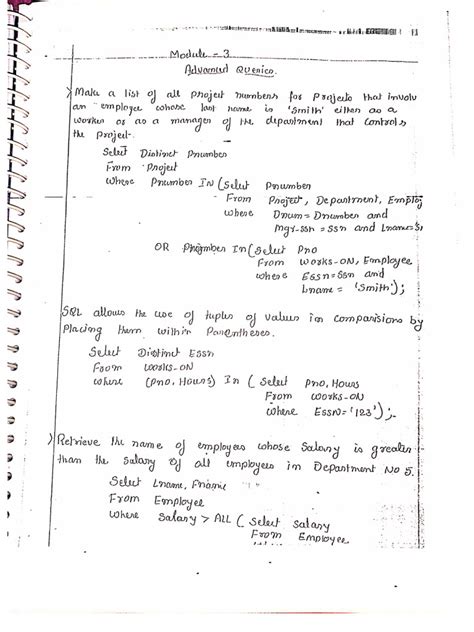 Module - 3
Advanced Queries.
Make a list of all project numbers for Projects that involv
an employee whose last name is 'Smith' either as a
worker or as a manager of the department that controls
the project.
Select Distinct Pnumber
From Project
Where Pnumber IN (Select Pnumber
From Project, Department, Employ
where Dnum = Dnumber and
Mgr-ssn = Ssn and Lname = 'S
OR Pnumber In (Select Pno
From WORKS-ON, Employee
where Essn = Ssn and
Lname = 'Smith');
SQL allows the use of tuples of values in comparisions by
Placing them within Parentheses.
Select Distinct Essn
From WORKS-ON
where (Pno, Hours) In ( Select Pno, Hours
From WORKS-ON
where ESSN = '123');
Retrieve the name of employees whose Salary is greater
than the salary of all employees in Department No 5.
Select Lname, Fname
From Employee
Where Salary > ALL ( Select Salary
From Employee